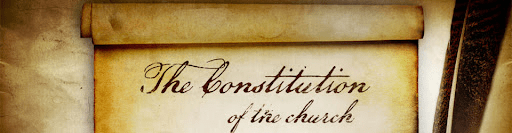 The Constitution
of the church